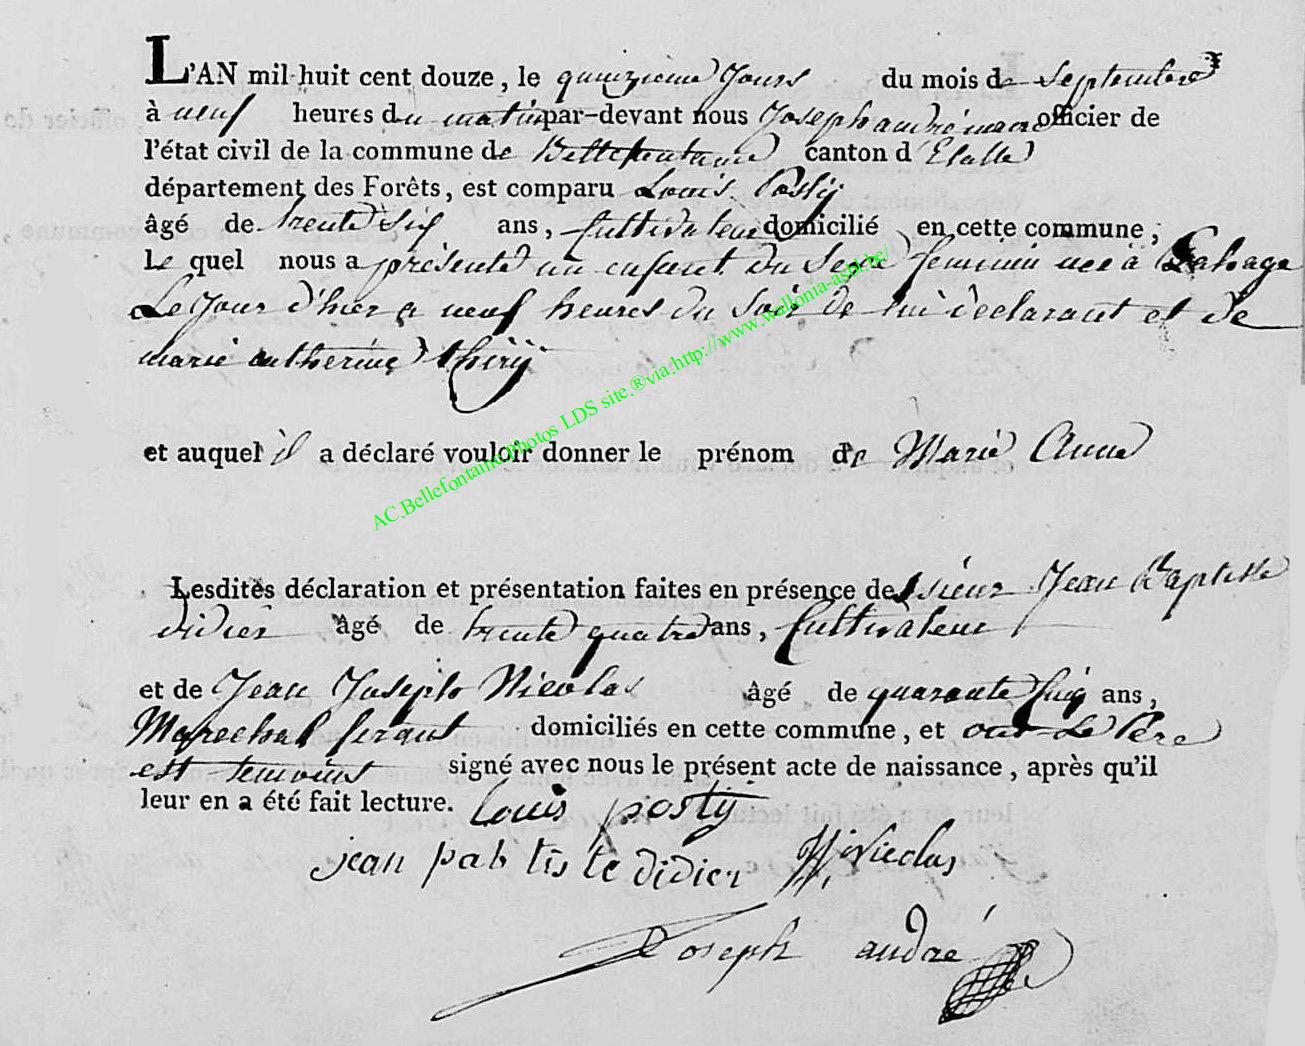 L'AN mil huit cent douze, le quinzieme Jours du mois de Septembre
à neuf heures du matin par-devant nous Joseph andré maire officier de
l'état civil de la commune de Bellefontaine canton d'Etalle
département des Forêts, est comparu Louis Postij
âgé de trente Six ans, Cultivateur domicilié en cette commune,
Le quel nous a présenté un enfent du Sexe feminin neé à Lahage
Le Jour d'hier a neuf heures du Soir de lui declarant et de
marie catherine thirij
et auquel il a déclaré vouloir donner le prénom de Marie Anne
Lesdites déclaration et présentation faites en présence de sieur Jean Baptiste
didier âgé de trente quatre ans, Cultivateur
et de Jean Joseph Nicolas âgé de quarante Cinq ans,
Marechal ferant domiciliés en cette commune, et ont Le Pere
est temoins signé avec nous le présent acte de naissance, après qu'il
leur en a été fait lecture. Louis postij
jean pabtiste didier JJ Nicolas
Joseph andré
AC.Bellefontaine.Photos LDS site.®via.http://www.wallonia-asbl.be/